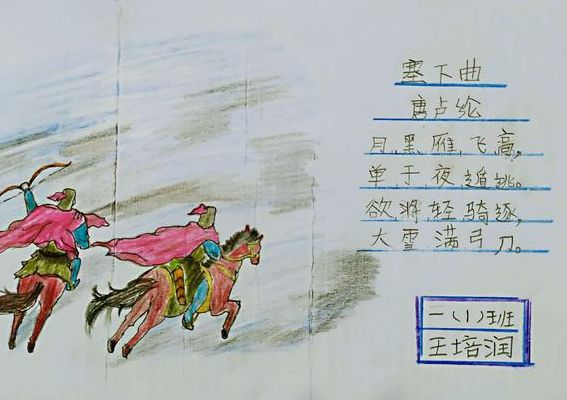 塞下曲
唐卢纶
月黑雁飞高,
单于夜遁逃。
欲将轻骑逐,
大雪满弓刀。
一(1)班
王培润